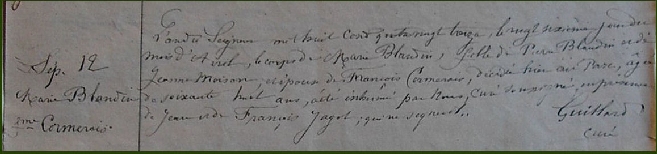 Sép. 12
Marie Blandin
fme Cormerais.
L'an du Seigneur mil huit cent quatre vingt treize, le vingt sixième jour du
mois d'Avril, le corps de Marie Blandin, fille de Pierre Blandin et de
Jeanne Moison, et épouse de François Cormerais, décédée hier au Rose, âgée
de soixante huit ans, a été inhumé par Nous, Curé soussigné, en présence
de Jean et de François Jagot, qui ne signent.
Guillard
curé